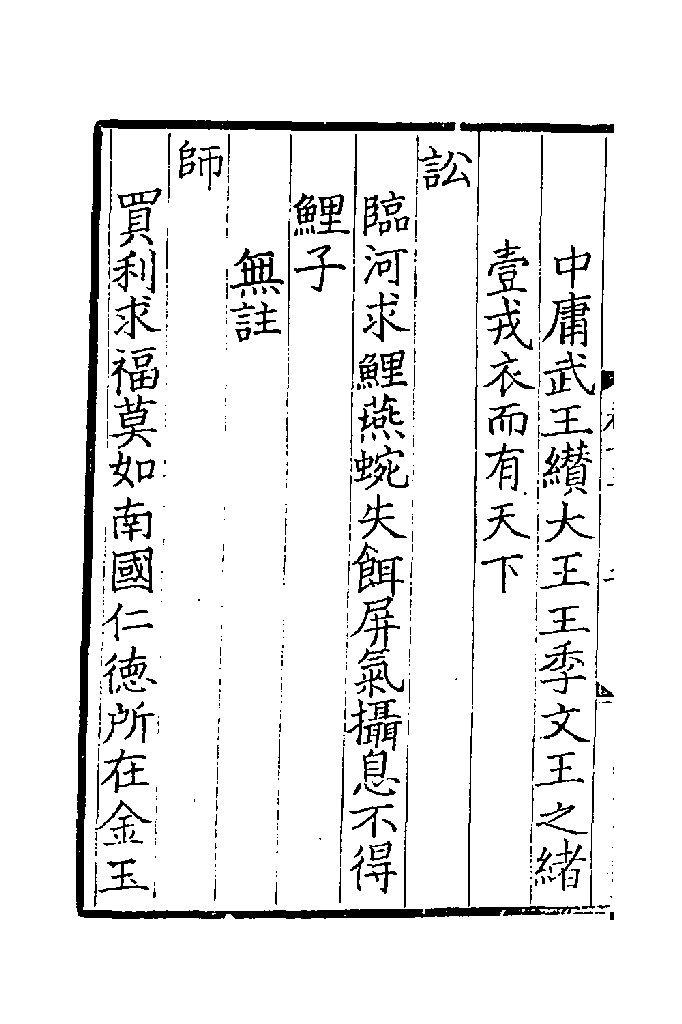 中庸武王纉大王王季文王之緒
壹戎衣而有天下
訟
臨河求鯉燕蜿失餌屏氣攝息不得
鯉子
無註
師
買利求福莫如南國仁徳所在金玉